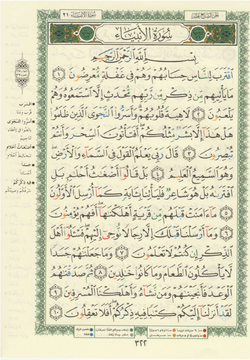 سُورَةُ الأَنبِيَاءِ
بِسْمِ اللَّهِ الرَّحْمَٰنِ الرَّحِيمِ
اقْتَرَبَ لِلنَّاسِ حِسَابُهُمْ وَهُمْ فِي غَفْلَةٍ مُعْرِضُونَ ١
مَا يَأْتِيهِمْ مِنْ ذِكْرٍ مِنْ رَبِّهِمْ مُحْدَثٍ إِلَّا اسْتَمَعُوهُ وَهُمْ
يَلْعَبُونَ ٢ لَاهِيَةً قُلُوبُهُمْ وَأَسَرُّوا النَّجْوَى الَّذِينَ ظَلَمُوا
هَلْ هَٰذَا إِلَّا بَشَرٌ مِثْلُكُمْ أَفَتَأْتُونَ السِّحْرَ وَأَنْتُمْ
تُبْصِرُونَ ٣ قَالَ رَبِّي يَعْلَمُ الْقَوْلَ فِي السَّمَاءِ وَالْأَرْضِ
وَهُوَ السَّمِيعُ الْعَلِيمُ ٤ بَلْ قَالُوا أَضْغَاثُ أَحْلَامٍ بَلِ
افْتَرَاهُ بَلْ هُوَ شَاعِرٌ فَلْيَأْتِنَا بِآيَةٍ كَمَا أُرْسِلَ الْأَوَّلُونَ ٥
مَا آمَنَتْ قَبْلَهُمْ مِنْ قَرْيَةٍ أَهْلَكْنَاهَا أَفَهُمْ يُؤْمِنُونَ ٦
وَمَا أَرْسَلْنَا قَبْلَكَ إِلَّا رِجَالًا نُوحِي إِلَيْهِمْ فَاسْأَلُوا أَهْلَ
الذِّكْرِ إِنْ كُنْتُمْ لَا تَعْلَمُونَ ٧ وَمَا جَعَلْنَاهُمْ جَسَدًا
لَا يَأْكُلُونَ الطَّعَامَ وَمَا كَانُوا خَالِدِينَ ٨ ثُمَّ صَدَقْنَاهُمُ
الْوَعْدَ فَأَنْجَيْنَاهُمْ وَمَنْ نَشَاءُ وَأَهْلَكْنَا الْمُسْرِفِينَ ٩
لَقَدْ أَنْزَلْنَا إِلَيْكُمْ كِتَابًا فِيهِ ذِكْرُكُمْ أَفَلَا تَعْقِلُونَ ١٠
٣٢٢